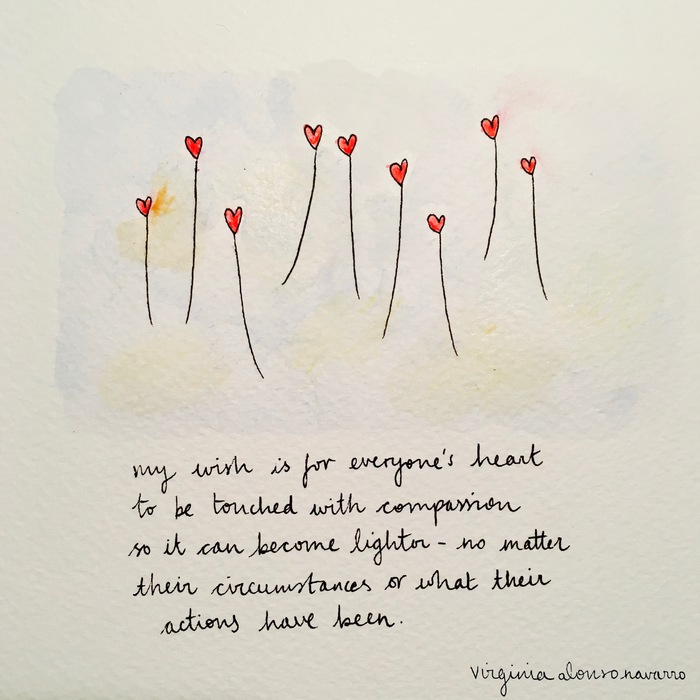 my wish is for everyone's heart
to be touched with compassion
so it can become lighter - no matter
their circumstances or what their
actions have been.
virginia alonso navarro